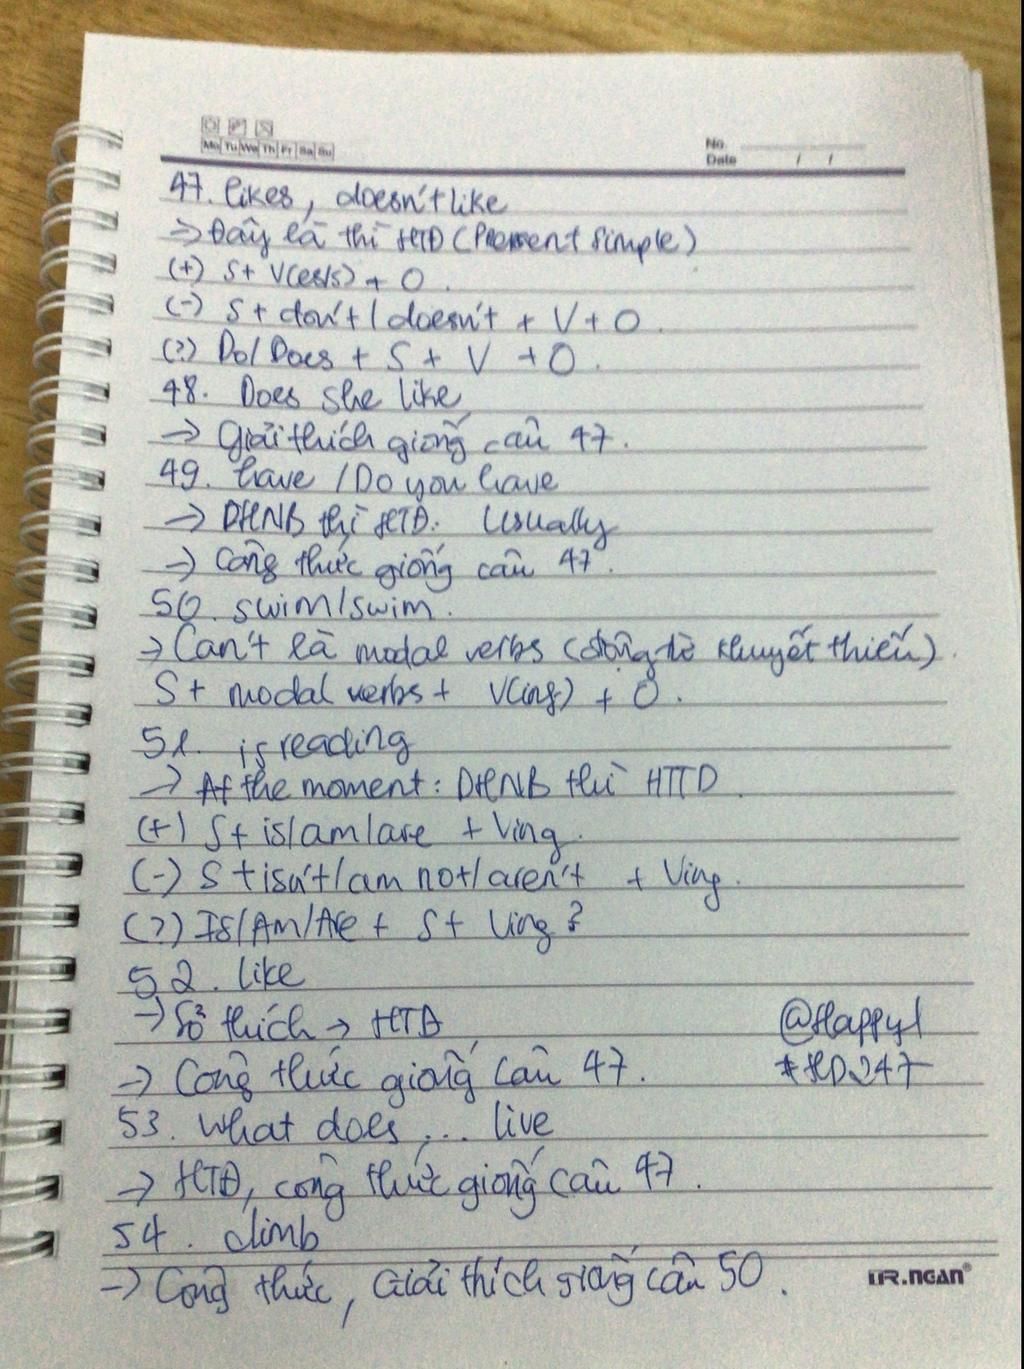 Mo Tu We Th Fr Sa Su
No.
Date / /
47. likes, doesn't like
=> Đây là thì HTĐ (Present simple)
(+) S + V(es/s) + O.
(-) S + don't / doesn't + V + O.
(?) Do/Does + S + V + O.
48. Does she like
-> Giải thích giống câu 47.
49. have / Do you have
-> DHNB thì HTĐ: Usually
-> Công thức giống câu 47.
50. swim/swim.
-> Can't là modal verbs (động từ khuyết thiếu).
S + modal verbs + V(ing) + O.
51. is reading
-> At the moment: DHNB thì HTTD.
(+) S + is/am/are + Ving.
(-) S + isn't/am not/aren't + Ving.
(?) Is/Am/Are + S + Ving?
52. like
-> Sở thích -> HTĐ
@Happy1
-> Công thức giống câu 47.
#HD247
53. What does ... live
-> HTĐ, công thức giống câu 47.
54. climb
-> Công thức, Giải thích giống câu 50.
MR.NGAN®